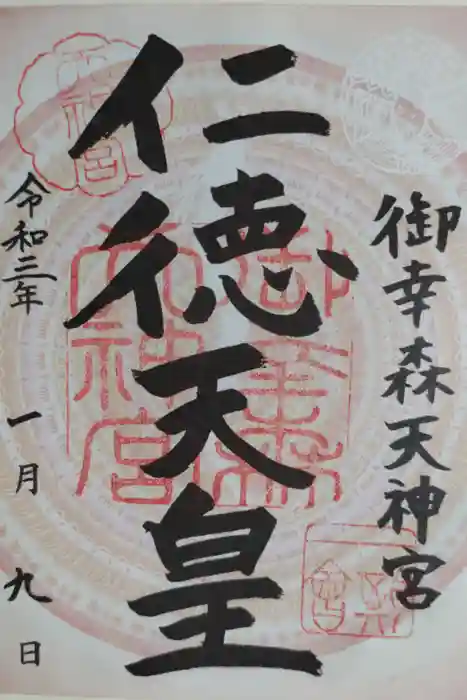 御幸森天神宮
仁徳天皇
令和三年 一月 九日